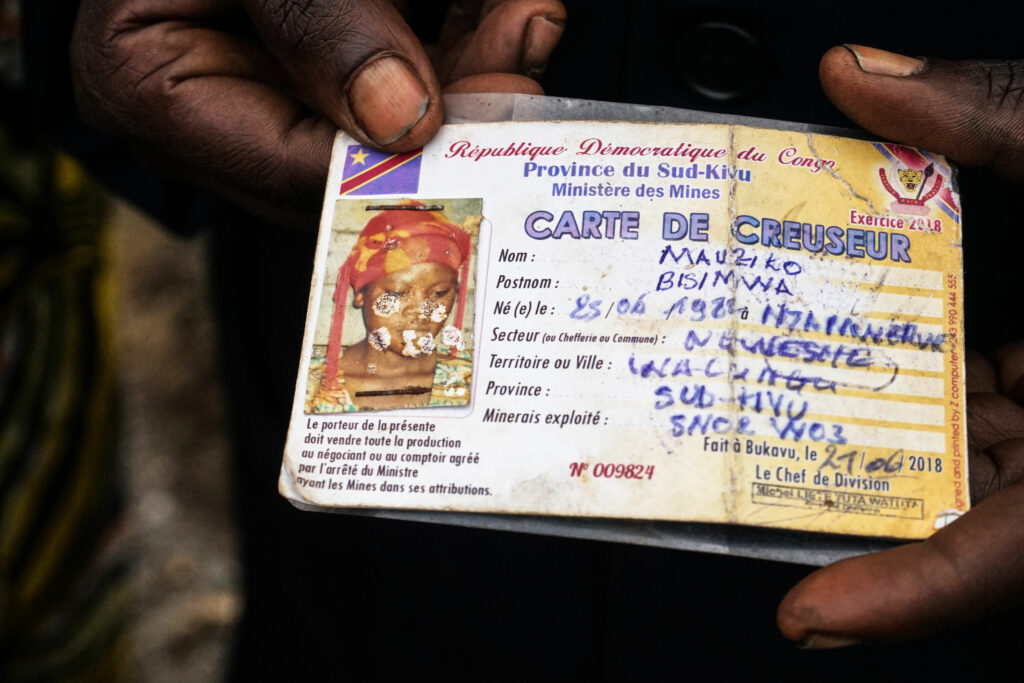 République Démocratique du Congo
Province du Sud-Kivu
Ministère des Mines
Exercice 2018
CARTE DE CREUSEUR
Nom : MAUZIKO
Postnom : BISIMWA
Né (e) le : 25/06 à
Secteur (ou Chefferie ou Commune) :
Territoire ou Ville : WALUNGU
Province : SUD-KIVU
Minerais exploité : SNO2 WO3
Le porteur de la présente
doit vendre toute la production
au négociant ou au comptoir agréé
par l'arrêté du Ministre
ayant les Mines dans ses attributions.
N° 009824
Fait à Bukavu, le 21/06 2018
Le Chef de Division
and printed by Z computer +243 990 444 555